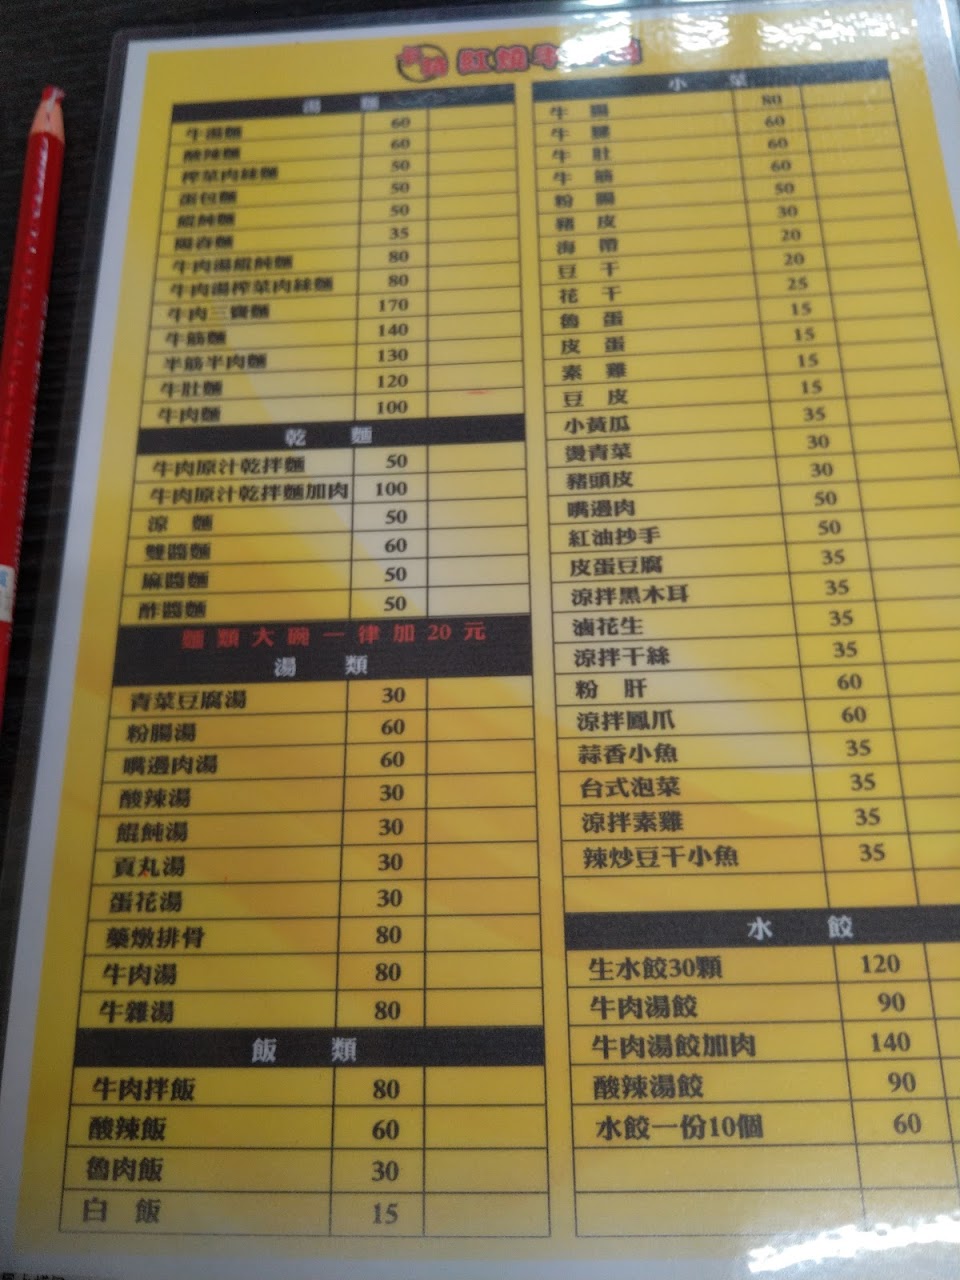 紅燒牛
湯 麵
牛湯麵 60
酸辣麵 60
榨菜肉絲麵 50
蛋包麵 50
餛飩麵 50
陽春麵 35
牛肉湯餛飩麵 80
牛肉湯榨菜肉絲麵 80
牛肉三寶麵 170
牛筋麵 140
半筋半肉麵 130
牛肚麵 120
牛肉麵 100
乾 麵
牛肉原汁乾拌麵 50
牛肉原汁乾拌麵加肉 100
涼 麵 50
雙醬麵 60
麻醬麵 50
酢醬麵 50
麵類大碗一律加20元
湯 類
青菜豆腐湯 30
粉腸湯 60
嘴邊肉湯 60
酸辣湯 30
餛飩湯 30
貢丸湯 30
蛋花湯 30
藥燉排骨 80
牛肉湯 80
牛雜湯 80
飯 類
牛肉拌飯 80
酸辣飯 60
魯肉飯 30
白 飯 15
小 菜
牛 腸 80
牛 腱 60
牛 肚 60
牛 筋 60
粉 腸 50
豬 皮 30
海 帶 20
豆 干 20
花 干 25
魯 蛋 15
皮 蛋 15
素 雞 15
豆 皮 15
小黃瓜 35
燙青菜 30
豬頭皮 30
嘴邊肉 50
紅油抄手 50
皮蛋豆腐 35
涼拌黑木耳 35
滷花生 35
涼拌干絲 35
粉 肝 60
涼拌鳳爪 60
蒜香小魚 35
台式泡菜 35
涼拌素雞 35
辣炒豆干小魚 35
水 餃
生水餃30顆 120
牛肉湯餃 90
牛肉湯餃加肉 140
酸辣湯餃 90
水餃一份10個 60